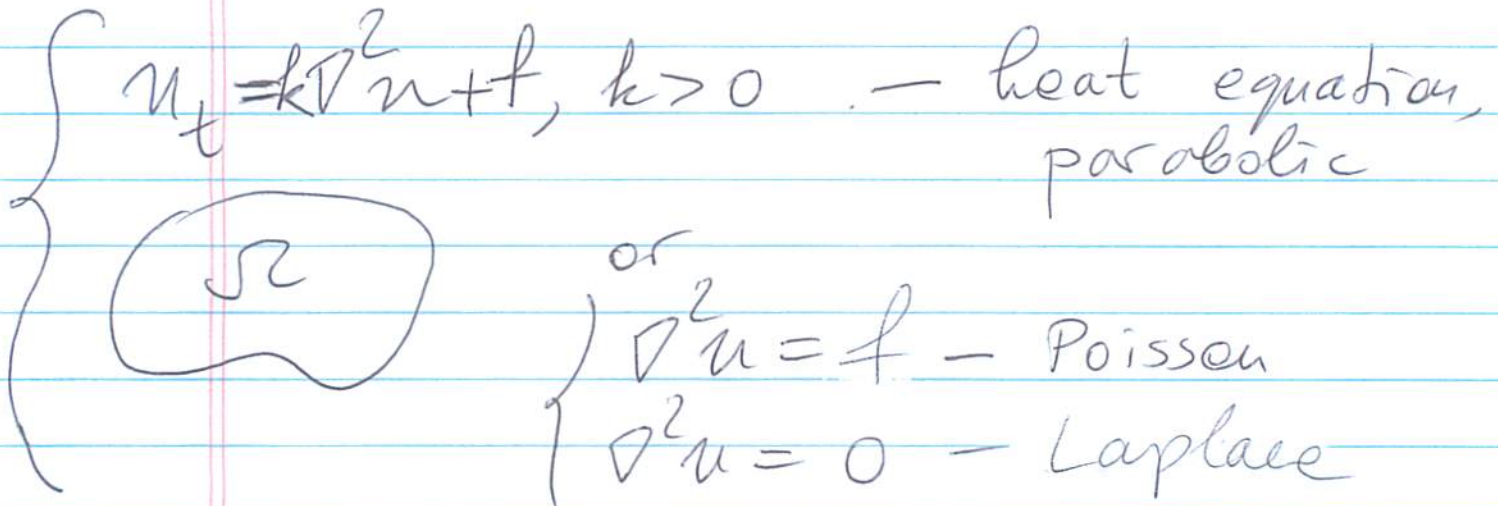 u_t = k∇²u + f, k > 0 — heat equation,
parabolic
Ω
or
∇²u = f — Poisson
∇²u = 0 — Laplace